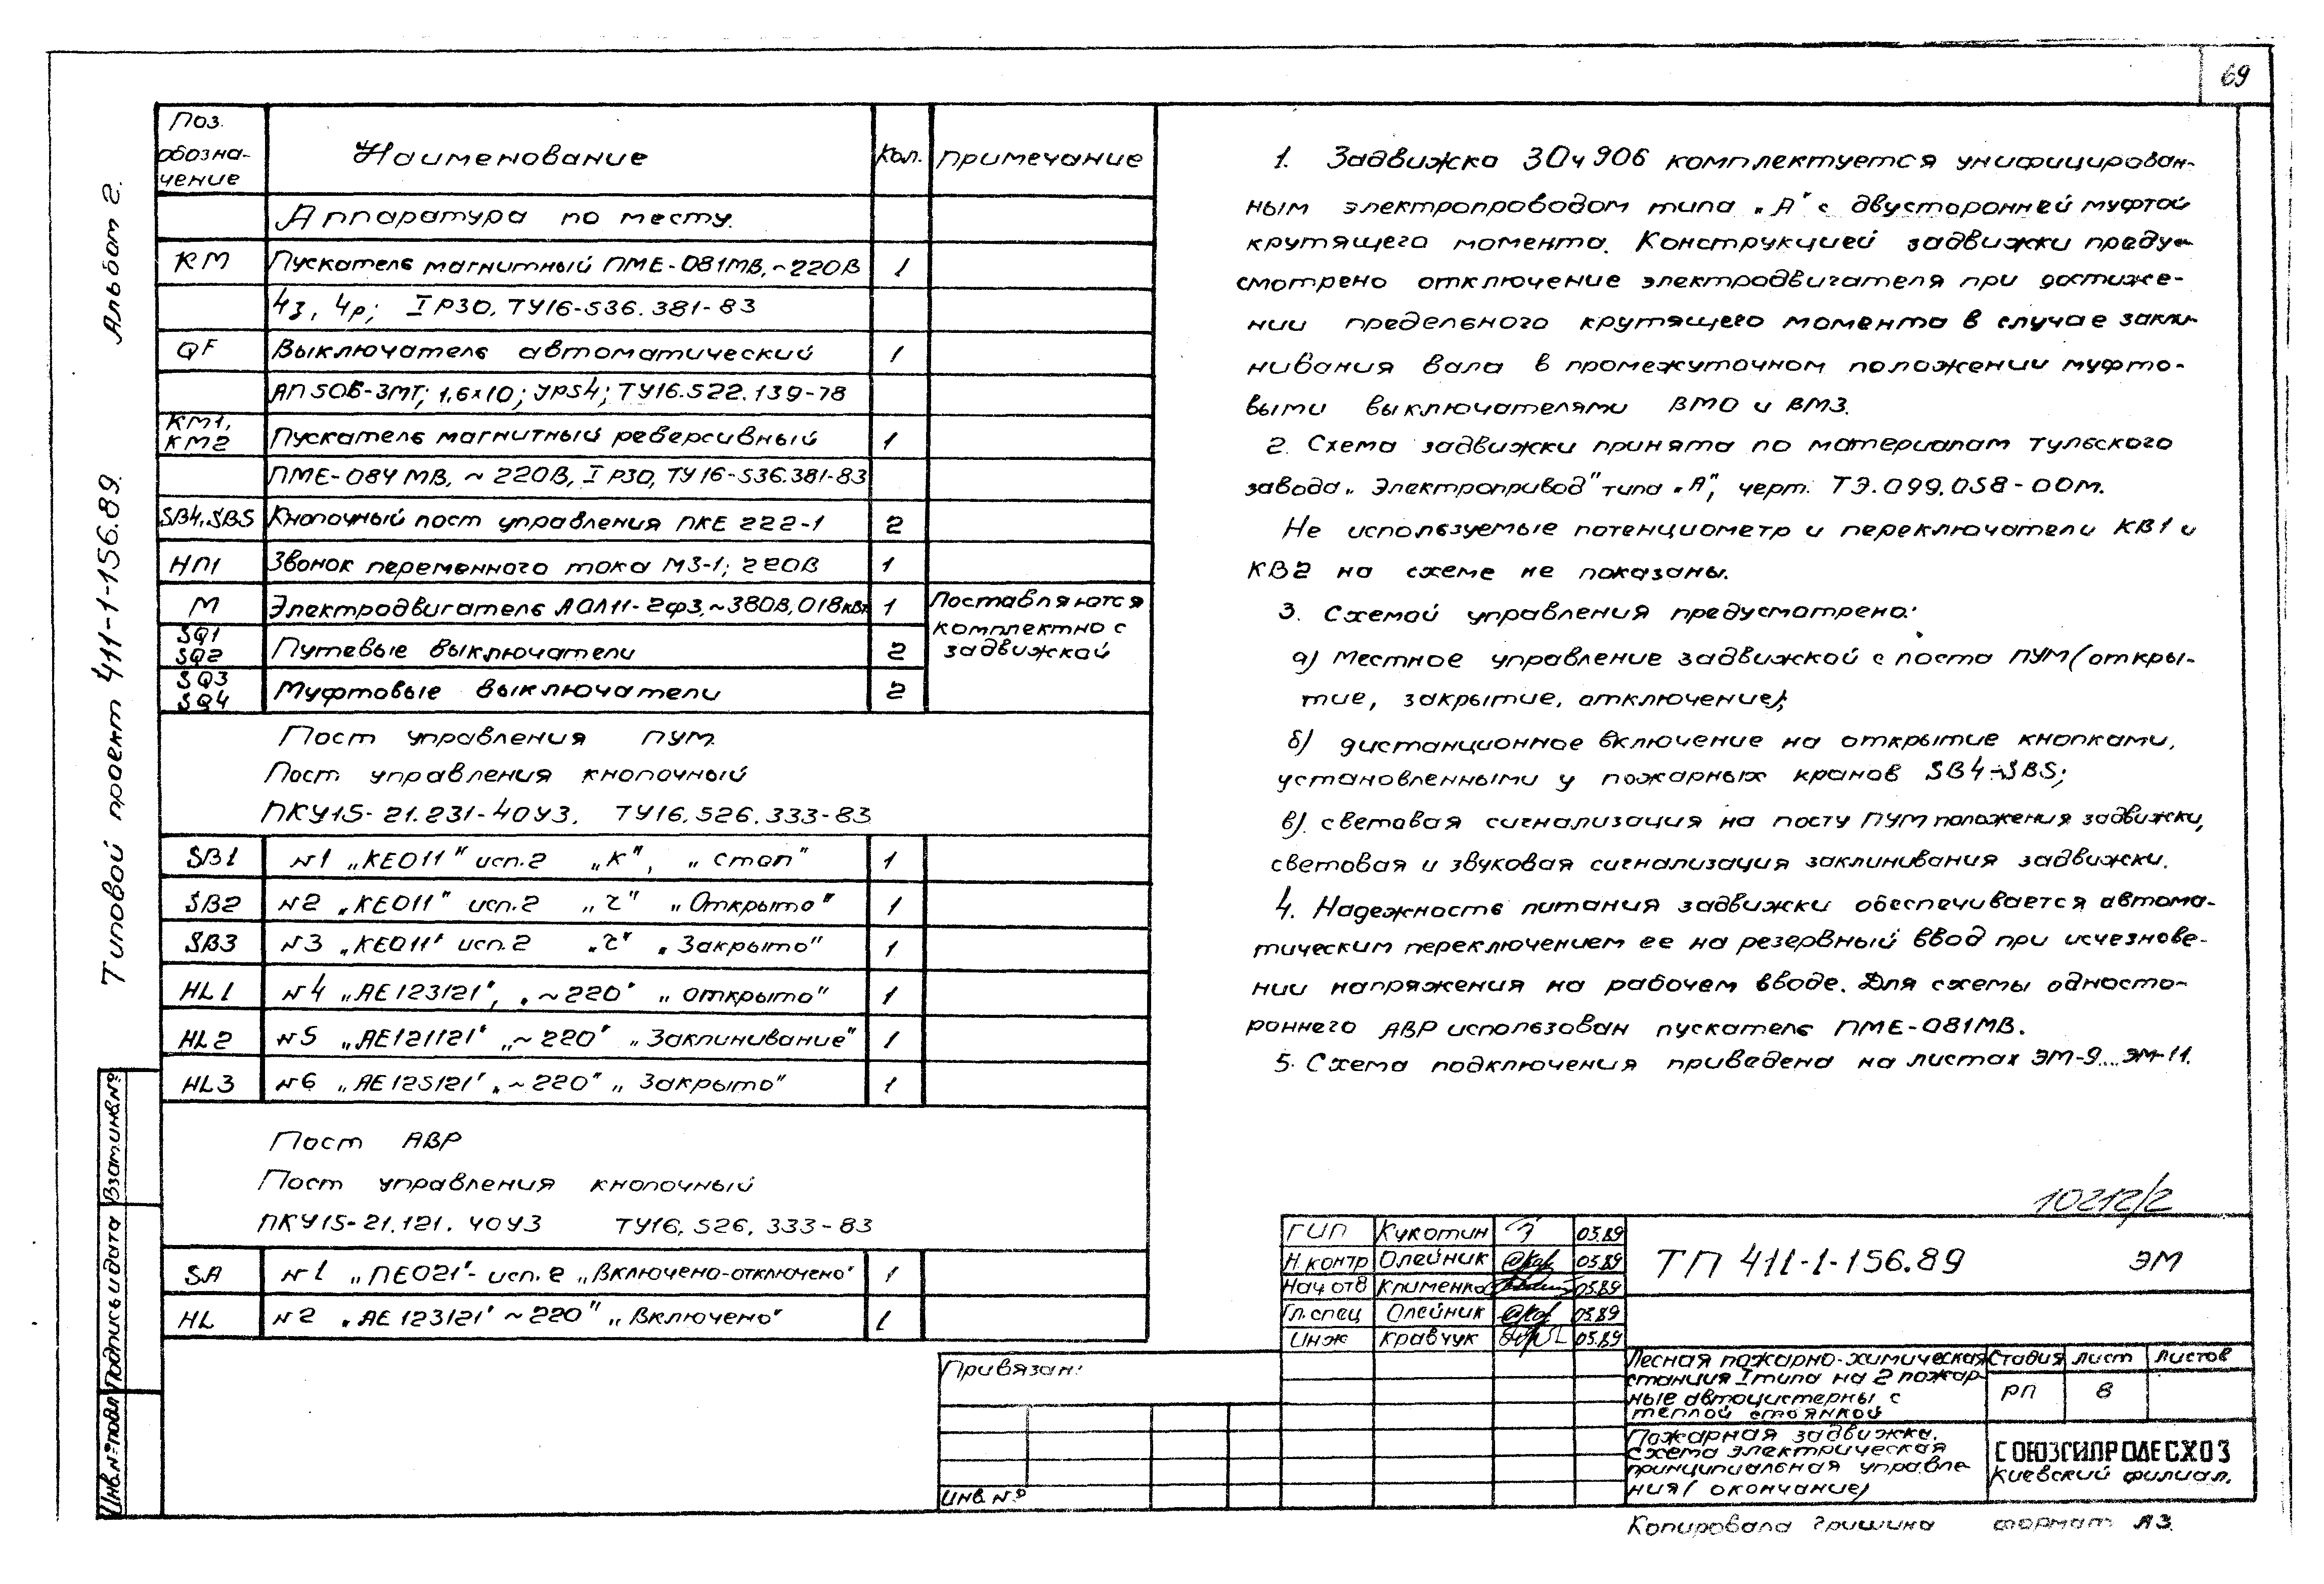 69
Альбом 2.
Типовой проект 411-1-156.89.
Поз. обозна-чение | Наименование | Кол. | Примечание
Аппаратура по месту.
КМ | Пускатель магнитный ПМЕ-081МВ, ~220В | 1
4з, 4р; IP30, ТУ16-536.381-83
QF | Выключатель автоматический | 1
АП50Б-3МТ; 1.6х10; УР54; ТУ16.522.139-78
КМ1, КМ2 | Пускатель магнитный реверсивный | 1
ПМЕ-084МВ, ~220В, IP30, ТУ16-536.381-83
SB4, SB5 | Кнопочный пост управления ПКЕ 222-1 | 2
НП1 | Звонок переменного тока МЗ-1; 220В | 1
М | Электродвигатель АОЛ11-2ф3, ~380В, 018кВт | 1 | Поставляются
SQ1 SQ2 | Путевые выключатели | 2 | комплектно с задвижкой
SQ3 SQ4 | Муфтовые выключатели | 2
Пост управления ПУМ
Пост управления кнопочный
ПКУ15-21.231-40У3. ТУ16.526.333-83
SB1 | №1 „КЕ011" исп.2 „К", „Стоп" | 1
SB2 | №2 „КЕ011" исп.2 „Ч" „Открыто" | 1
SB3 | №3 „КЕ011" исп.2 „Ч" „Закрыто" | 1
HL1 | №4 „АЕ123121", „~220" „Открыто" | 1
HL2 | №5 „АЕ121121" „~220" „Заклинивание" | 1
HL3 | №6 „АЕ125121" „~220" „Закрыто" | 1
Пост АВР
Пост управления кнопочный
ПКУ15-21.121.40У3 ТУ16.526.333-83
SA | №1 „ПЕ021"- исп.2 „Включено-отключено" | 1
HL | №2 „АЕ123121" ~220" „Включено" | 1
1. Задвижка 30ч906 комплектуется унифицирован-
ным электропроводом типа „А" с двусторонней муфтой
крутящего момента. Конструкцией задвижки преду-
смотрено отключение электродвигателя при достиже-
нии предельного крутящего момента в случае закли-
нивания вала в промежуточном положении муфто-
выми выключателями ВМО и ВМЗ.
2. Схема задвижки принята по материалам Тульского
завода „Электропривод" типа „А", черт. ТЭ.099.058-00М.
Не используемые потенциометр и переключатели КВ1 и
КВ2 на схеме не показаны.
3. Схемой управления предусмотрено:
а) местное управление задвижкой с поста ПУМ (откры-
тие, закрытие, отключение);
б) дистанционное включение на открытие кнопками,
установленными у пожарных кранов SB4÷SB5;
в) световая сигнализация на посту ПУМ положения задвижки,
световая и звуковая сигнализация заклинивания задвижки.
4. Надежность питания задвижки обеспечивается автома-
тическим переключением ее на резервный ввод при исчезнове-
нии напряжения на рабочем вводе. Для схемы односто-
роннего АВР использован пускатель ПМЕ-081МВ.
5. Схема подключения приведена на листах ЭМ-9...ЭМ-11.
10212/2
ГИП | Кукотин | 05.89
Н.контр | Олейник | 05.89
Нач отв | Клименко | 05.89
Гл.спец | Олейник | 05.89
Инж | Кравчук | 05.89
ТП 411-1-156.89 ЭМ
Лесная пожарно-химическая
станция I типа на 2 пожар
ные автоцистерны с
теплой стоянкой
Стадия | Лист | Листов
РП | 8
Пожарная задвижка.
Схема электрическая
принципиальная управле-
ния (окончание)
СОЮЗГИПРОЛЕСХОЗ
Киевский филиал.
Привязан:
Инв. №
Взам.инв.№
Подпись и дата
Инв.№ подл
Копировала Гришина формат А3